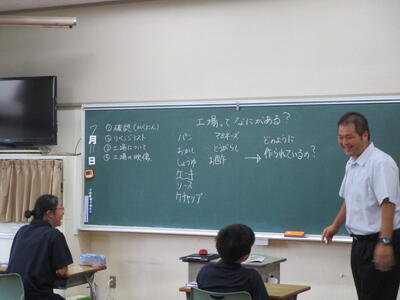 工場って なにがある？
7月11日
① 確認(かくにん)
② リベンジテスト
③ 工場について
④ 工場の映像
パン マヨネーズ
おかし とうがらし
しょうゆ お酢
ケーキ
ソース
ケチャップ
どのように
→ 作られているの？